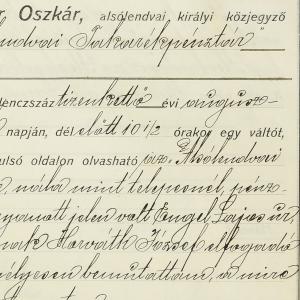 r. Oszkár, alsólendvai királyi közjegyző
ndvai Takarékpénztár"
lenczszáz tizenkettő évi augus-
napján, dél előtt 10 1/2 órakor egy váltót,
ulsó oldalon olvasható Alsólendvai
, noha mint telepesnél, pénz-
yanott jelen volt Engel Lajos úr
nak Horváth József elfogadó
élyesen bemutattam, a mire